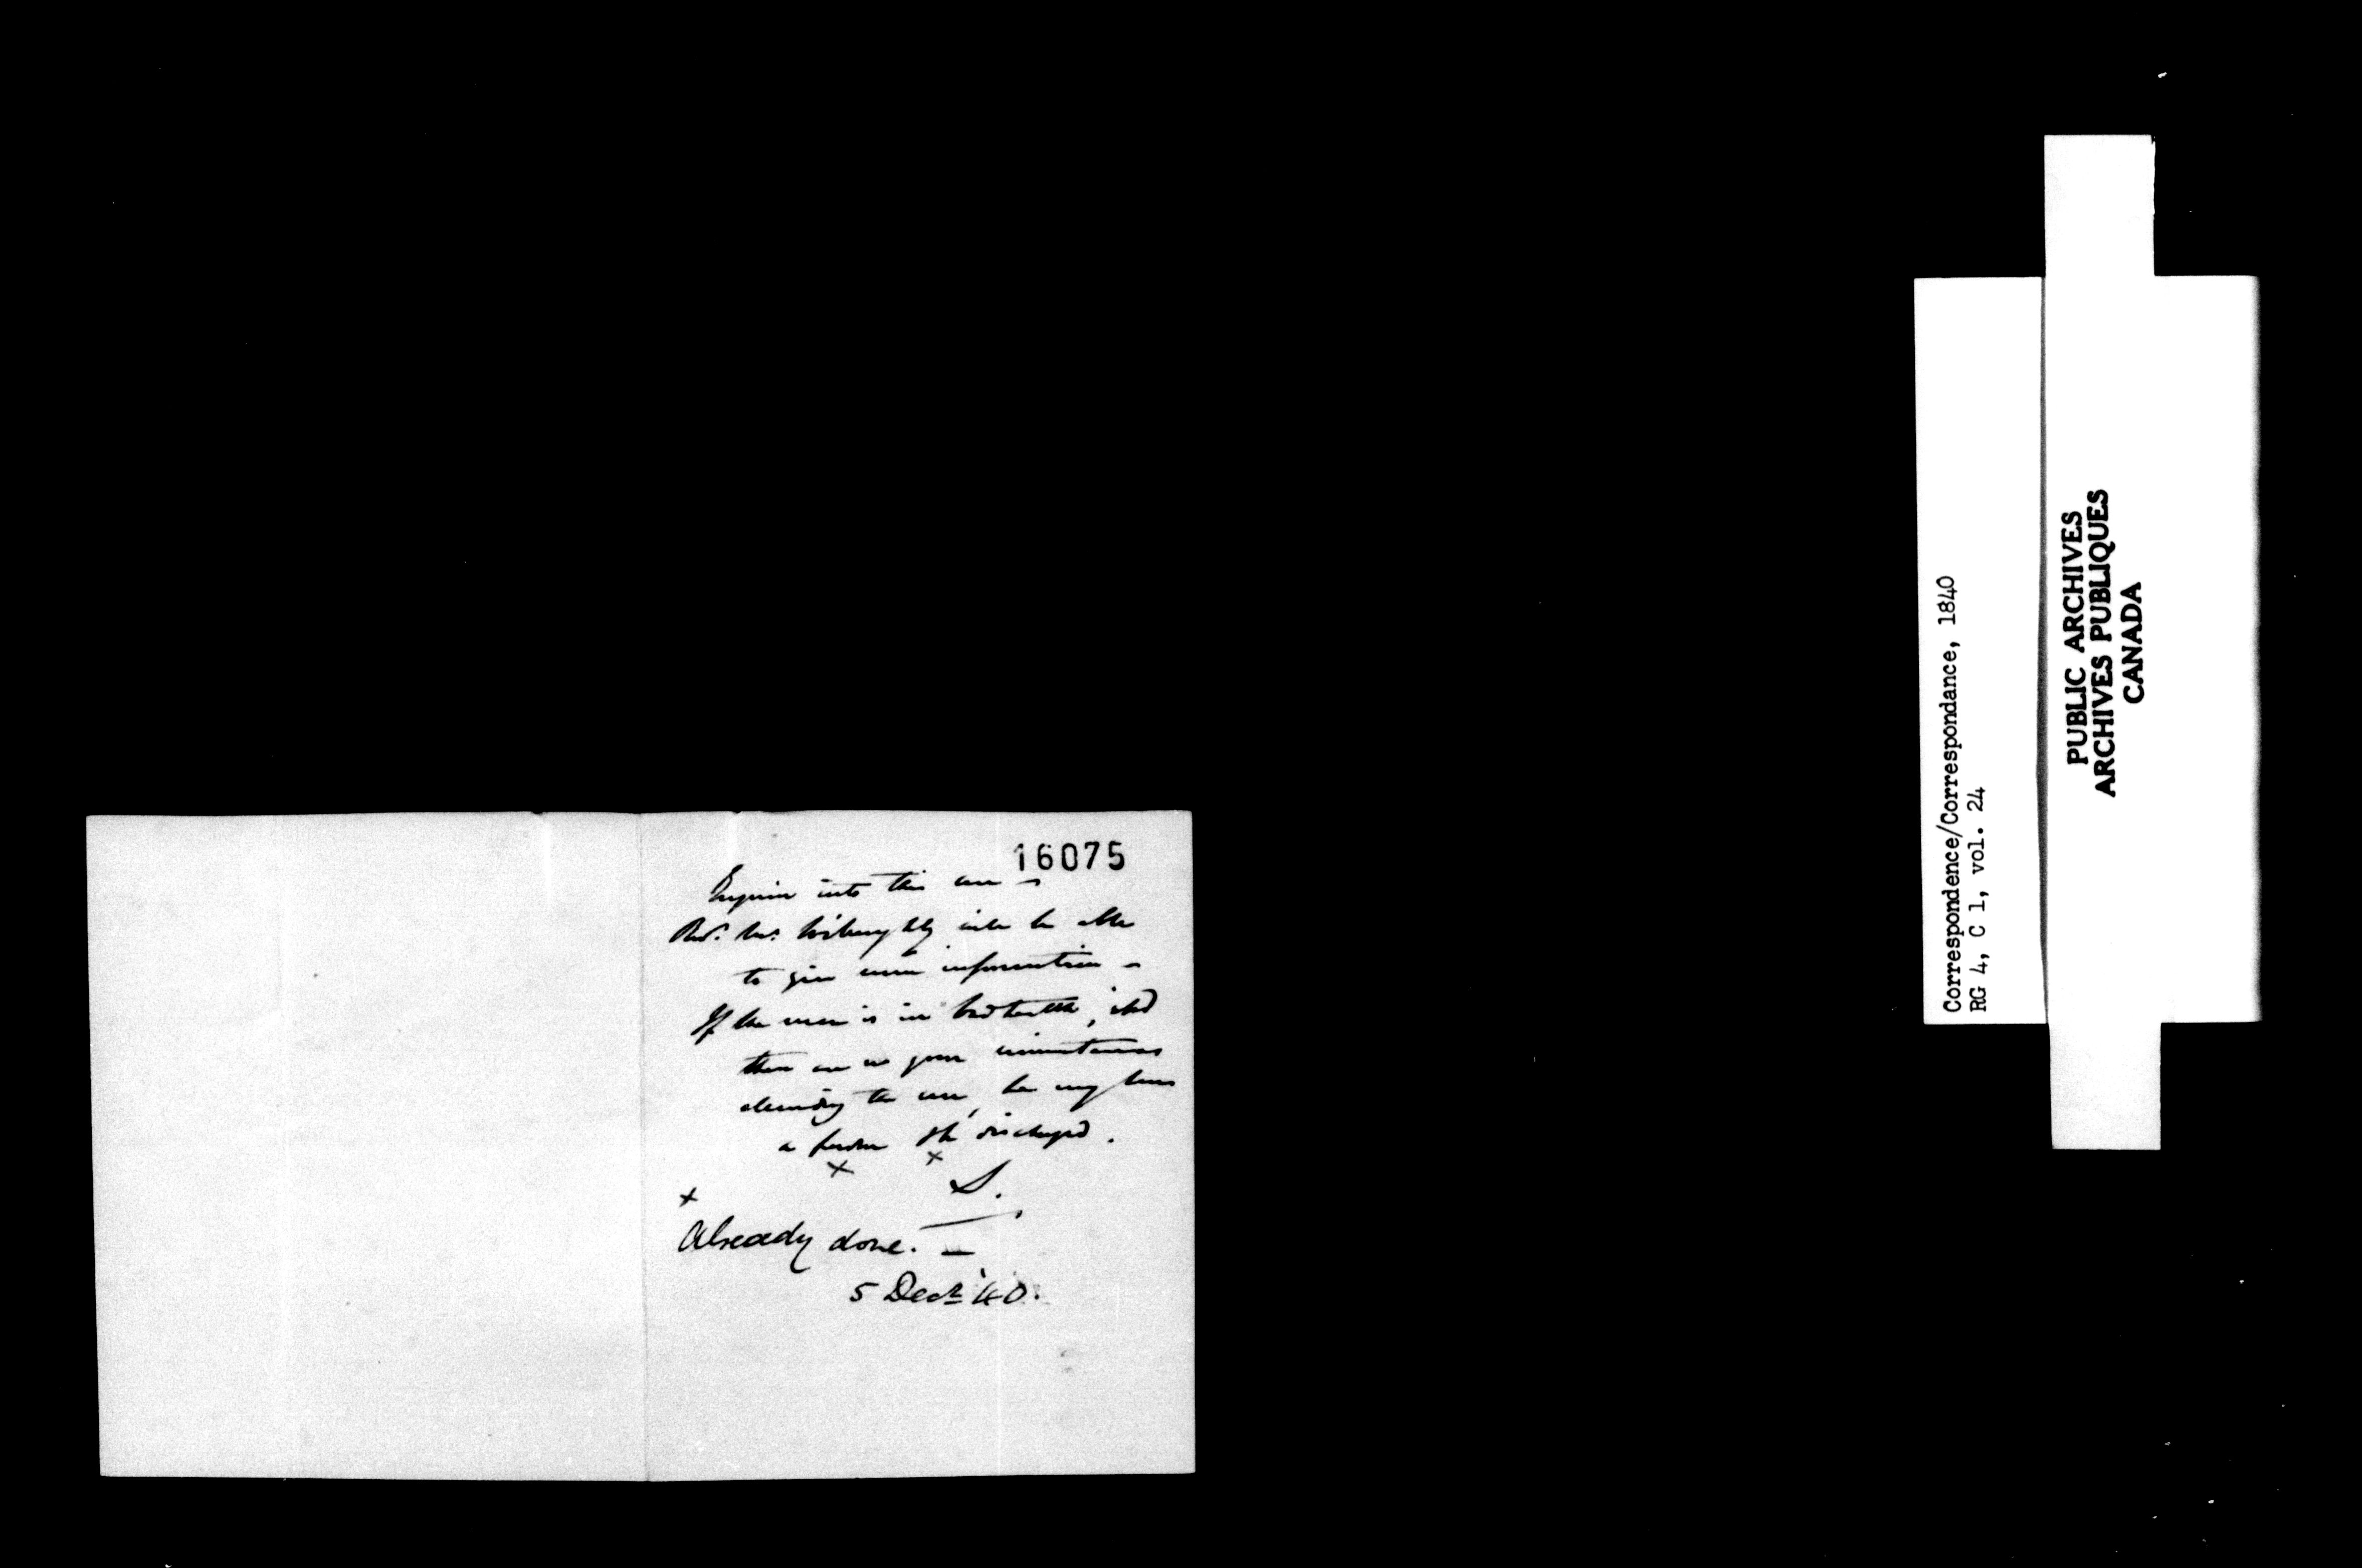 16075
Enquire into this case –
Revd. Mr. Willoughby will be able
to give some information –
If the man is in bad health, &
there are no circumstances
the case, he may have
a pardon & be discharged.
x x
S.
x
Already done. —
5 Decr. '40.
Correspondence/Correspondance, 1840
RG 4, C 1, vol. 24
PUBLIC ARCHIVES
ARCHIVES PUBLIQUES
CANADA